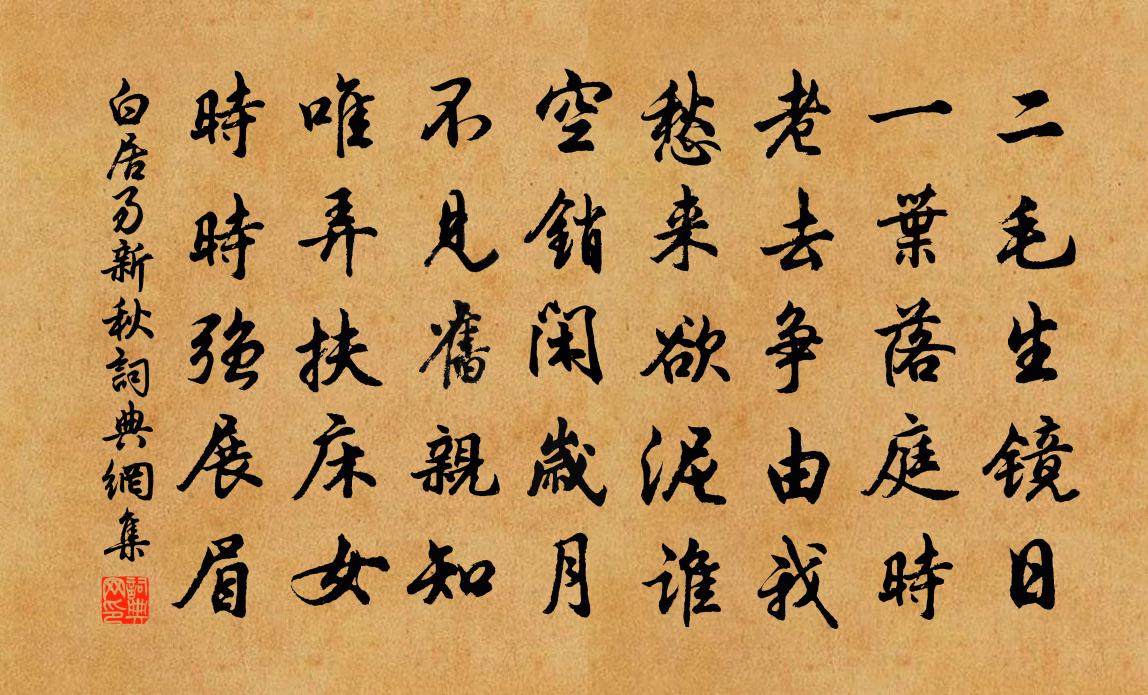 二毛生鏡日
一葉落庭時
老去争由我
愁来欲泥誰
空銷閑歲月
不見舊親知
唯弄扶床女
時時強展眉
白居易新秋詞典網集
詞典网印